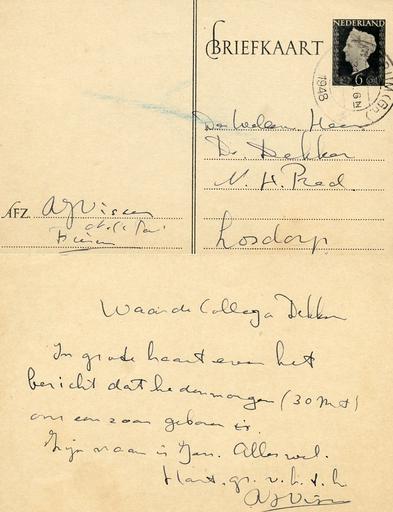 BRIEFKAART
NEDERLAND
6
1948
Den Weled. Heer
Ds. Dekker
N. H. Pred.
Losdorp.
AFZ. AJVisser
Waarde Collega Dekker
In grote haast even het
bericht dat hedenmorgen (30 Mrt)
ons een zoon geboren is.
Zijn naam is Jan. Alles wel.
Hart. gr. v. h. t. h
AJVisser